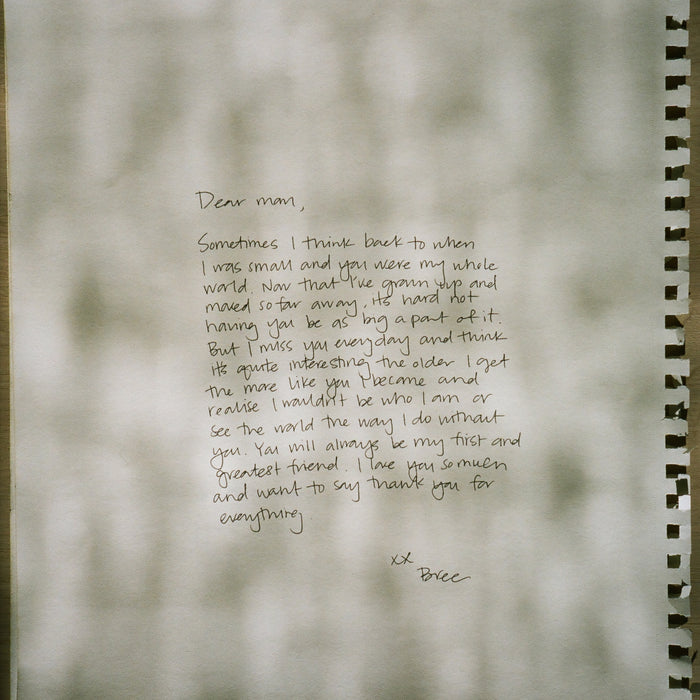 Dear mom,
Sometimes I think back to when
I was small and you were my whole
world. Now that I've grown up and
moved so far away, its hard not
having you be as big a part of it.
But I miss you everyday and think
it's quite interesting the older I get
the more like you I become and
realise I wouldn't be who I am or
see the world the way I do without
you. You will always be my first and
greatest friend. I love you so much
and want to say thank you for
everything.
xx
Bree